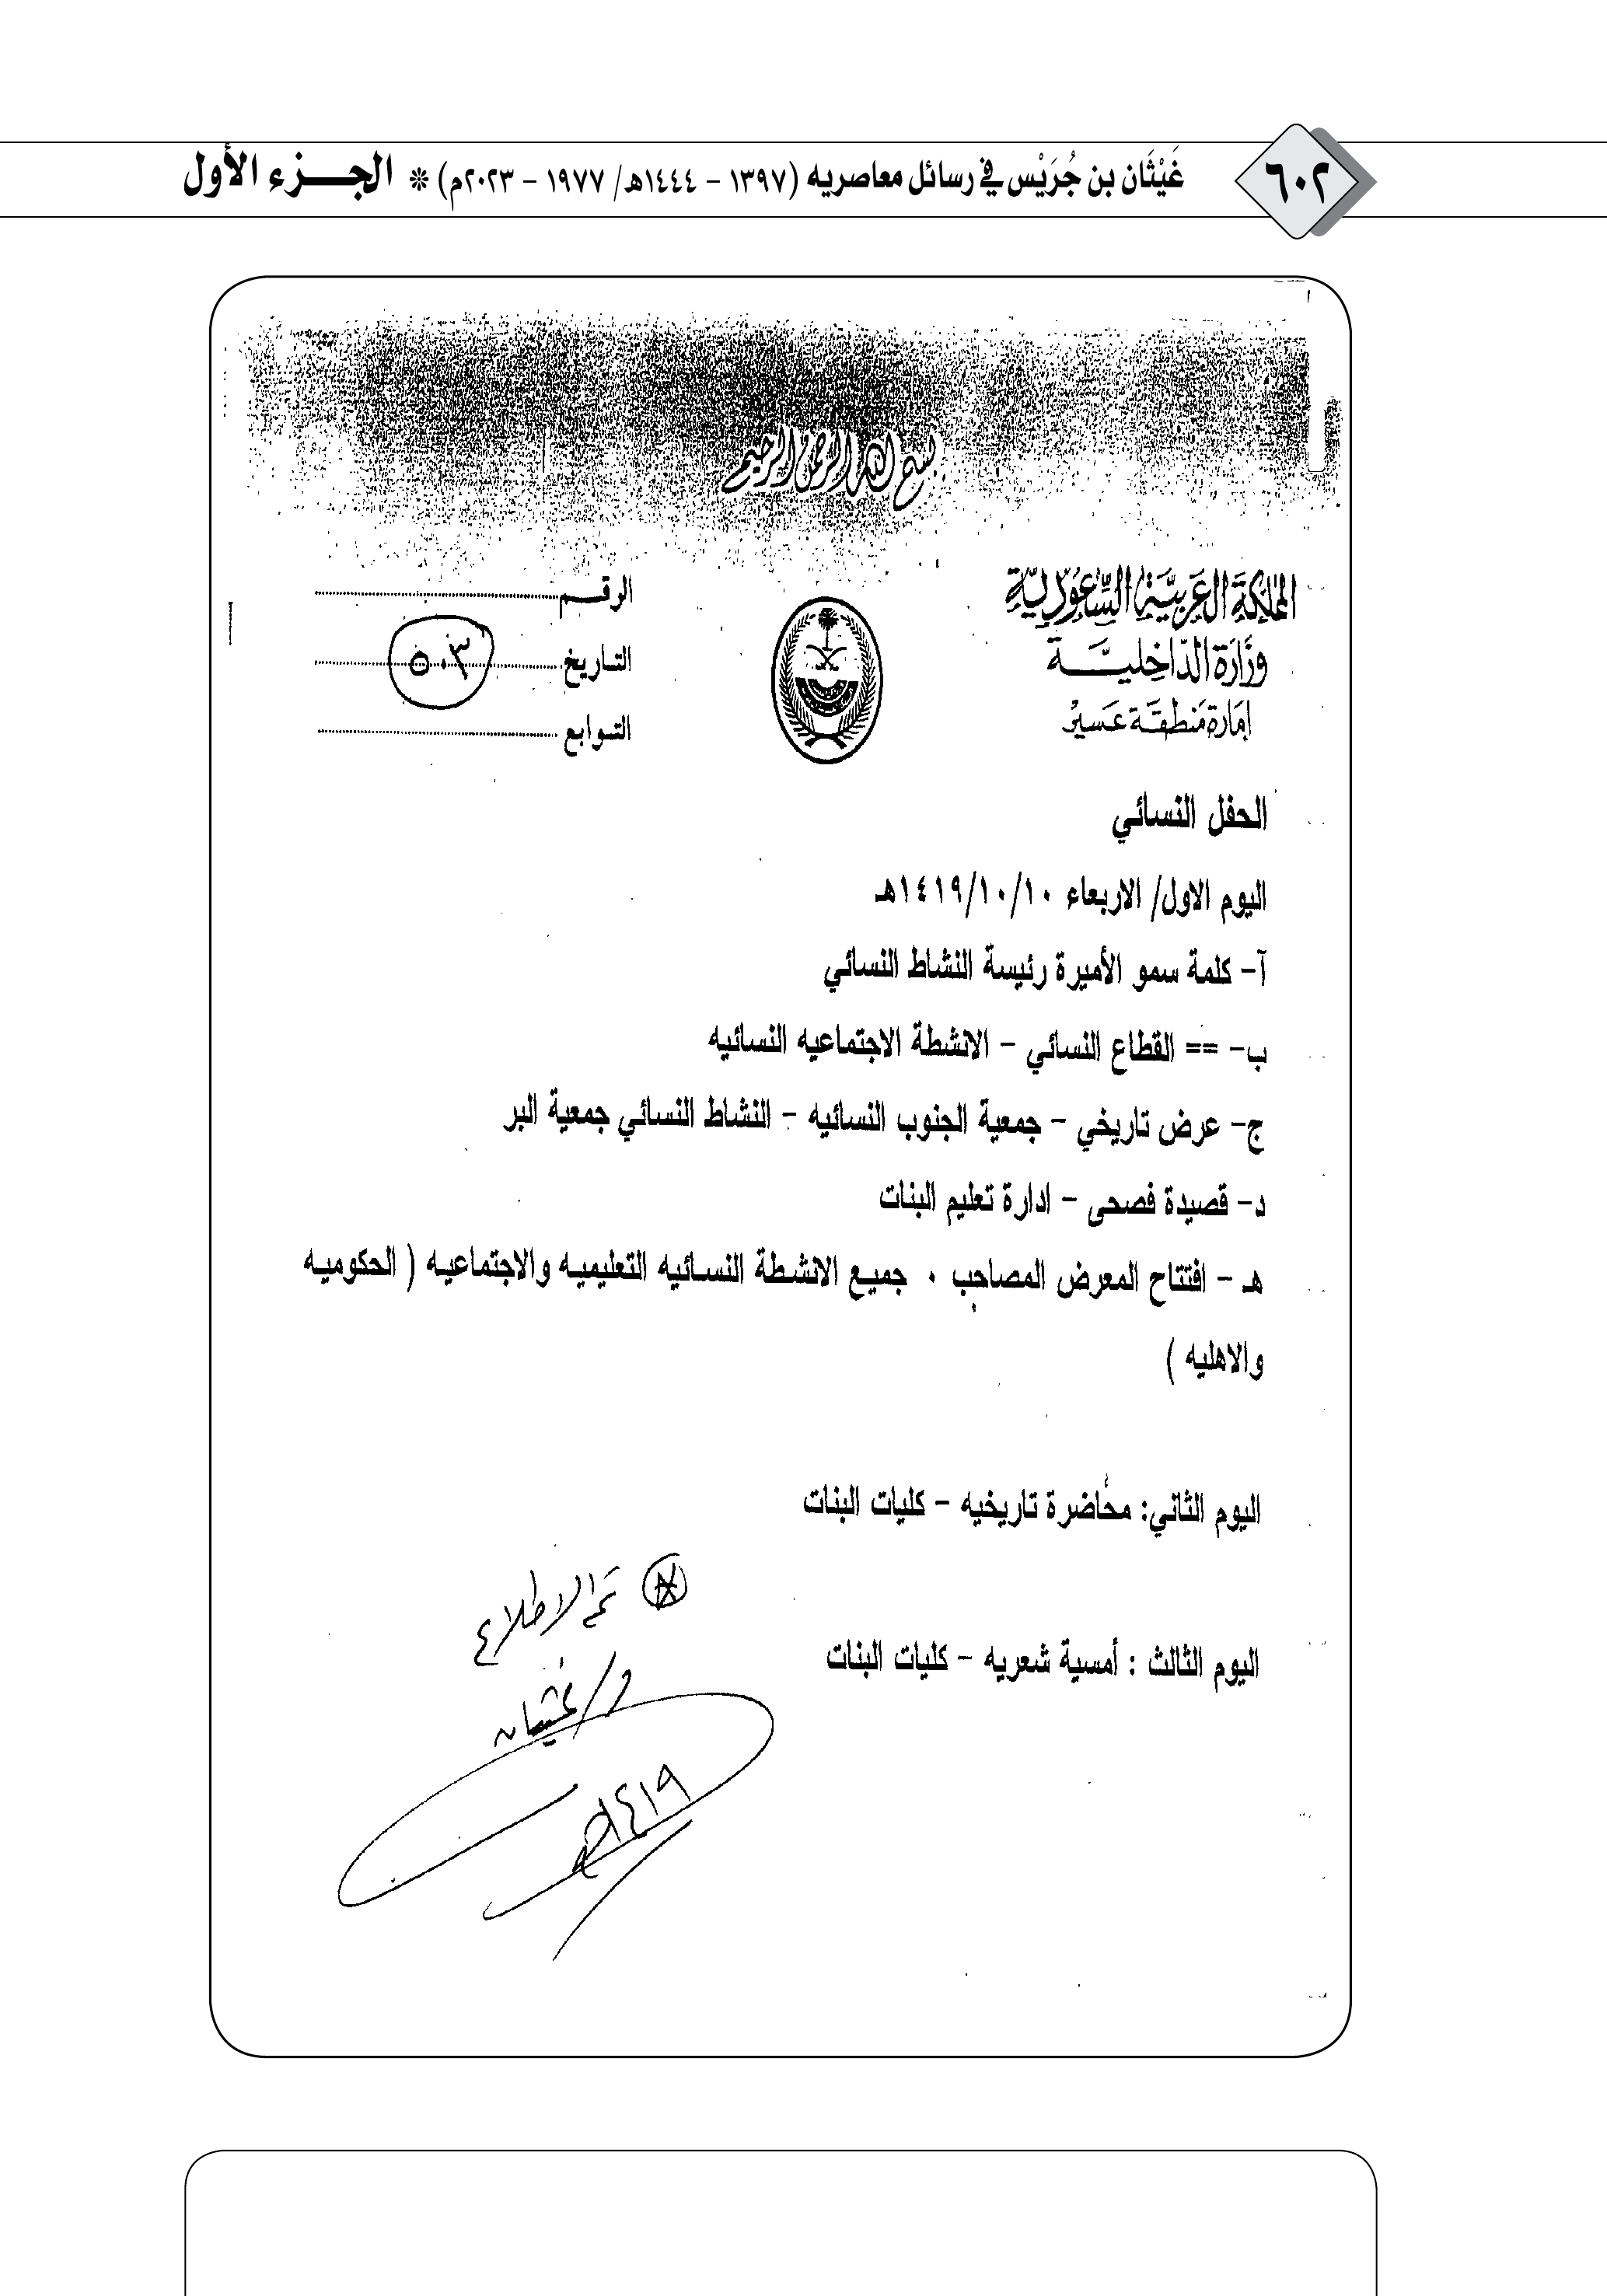 ٦٠٢
غَيْثَان بن جُرَيْس في رسائل معاصريه (١٣٩٧ - ١٤٤٤هـ/ ١٩٧٧ - ٢٠٢٣م) * الجزء الأول
بسم الله الرحمن الرحيم
المملكة العربية السعودية
وزارة الداخلية
إمارة منطقة عسير
الرقم
التاريخ
٥٠٣
التوابع
الحفل النسائي
اليوم الاول/ الاربعاء ١٤١٩/١٠/١٠هـ
آ- كلمة سمو الأميرة رئيسة النشاط النسائي
ب- == القطاع النسائي - الانشطة الاجتماعيه النسائيه
ج- عرض تاريخي - جمعية الجنوب النسائيه - النشاط النسائي جمعية البر
د- قصيدة فصحى - ادارة تعليم البنات
هـ - افتتاح المعرض المصاحب . جميع الانشطة النسائيه التعليميه والاجتماعيه ( الحكوميه
والاهليه )
اليوم الثاني: محاضرة تاريخيه - كليات البنات
تم الاطلاع
اليوم الثالث : أمسية شعريه - كليات البنات
د/ غيثان
١٤١٩هـ